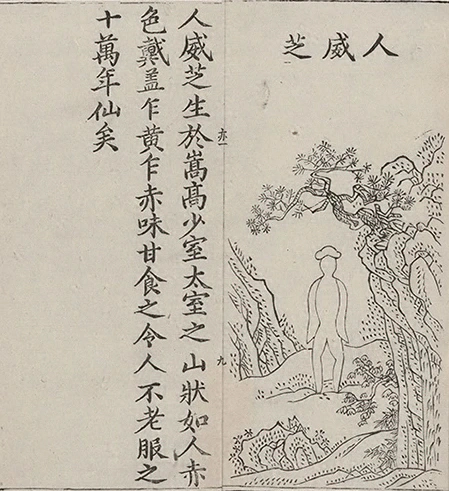 人威芝
人威芝生於嵩高少室太室之山狀如人赤
色戴盖乍黄乍赤味甘食之令人不老服之
十萬年仙矣
赤一
九